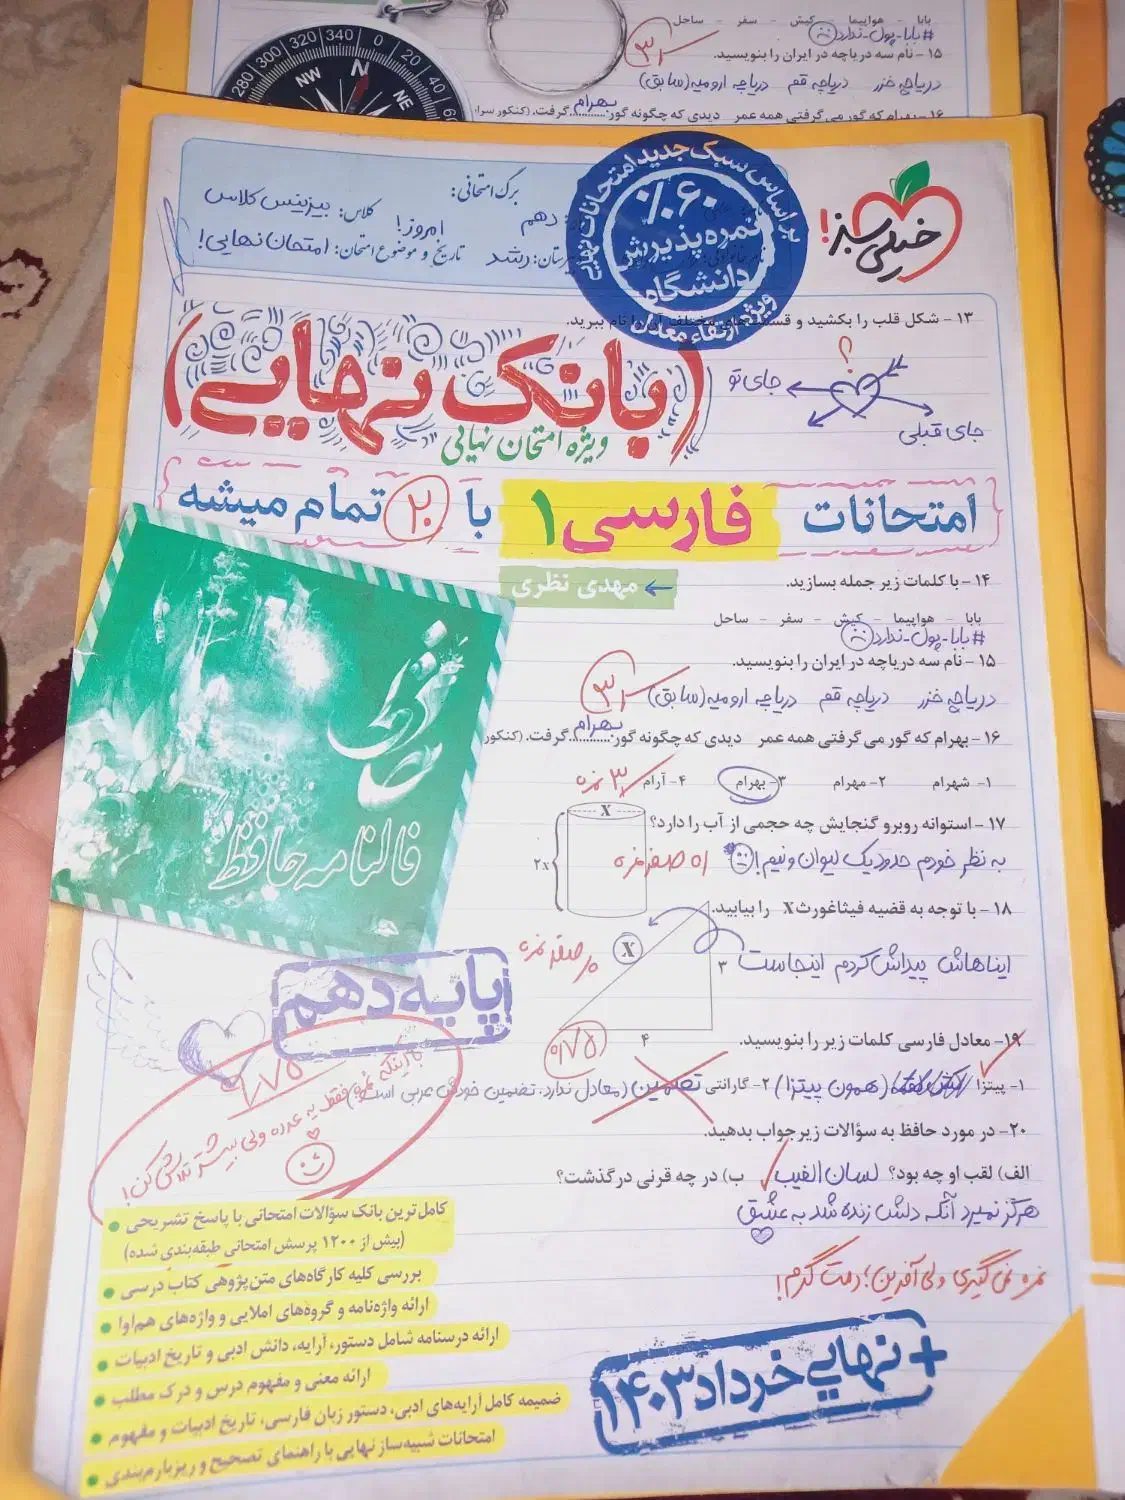 بابا - هواپیما - کیش - سفر - ساحل
#بابا-پول-ندارد
۱۵- نام سه دریاچه در ایران را بنویسید.
دریاچه خزر دریاچه قم دریاچه ارومیه (سابق)
۱۶- بهرام که گور می گرفتی همه عمر دیدی که چگونه گور بهرام گرفت. (کنکور سراس
280 300 320 340 0 20 40 60
NW N NE
برگ امتحانی:
دهم
کلاس: بیزینس کلاس
دبیرستان: رشد
تاریخ و موضوع امتحان: امروز! امتحان نهایی!
بر اساس سبک جدید امتحانات نهایی
٪۶۰
نمره پذیرش
دانشگاه
ویژه ارتقاء معدل
خیلی سبز!
۱۳- شکل قلب را بکشید و قسمت های مختلف آن را نام ببرید.
؟
جای تو
جای قبلی
(بانک نهایی)
ویژه امتحان نهایی
امتحانات فارسی ۱ با ۲۰ تمام میشه
مهدی نظری
۱۴- با کلمات زیر جمله بسازید.
بابا - هواپیما - کیش - سفر - ساحل
#بابا-پول-ندارد
۱۵- نام سه دریاچه در ایران را بنویسید.
دریاچه خزر دریاچه قم دریاچه ارومیه (سابق)
۱۶- بهرام که گور می گرفتی همه عمر دیدی که چگونه گور بهرام گرفت. (کنکور
۱- شهرام ۲- مهرام ۳- بهرام ۴- آرام
فالنامه حافظ
۱۷- استوانه روبرو گنجایش چه حجمی از آب را دارد؟
X
۲x
به نظر خودم حدود یک لیوان و نیم!
صفر نمره
۱۸- با توجه به قضیه فیثاغورث X را بیابید.
ایناهاش پیداش کردم اینجاست
X
۳
۴
صفر نمره
پایه دهم
۱۹- معادل فارسی کلمات زیر را بنویسید.
۰/۷۵
۱- پیتزا (همون پیتزا) ۲- گارانتی تضمین (معادل ندارد. تضمین خودش عربی است)
با اینکه نمره فقط یه عدده ولی بیشتر تلاش کن!
۲۰- در مورد حافظ به سؤالات زیر جواب بدهید.
الف) لقب او چه بود؟ لسان الغیب ب) در چه قرنی درگذشت؟
هرگز نمیرد آنکه دلش زنده شد به عشق
نمره نمی گیری ولی آفرین؛ دمت گرم!
کامل ترین بانک سؤالات امتحانی با پاسخ تشریحی
(بیش از ۱۲۰۰ پرسش امتحانی طبقه بندی شده)
بررسی کلیه کارگاه های متن پژوهی کتاب درسی
ارائه واژه نامه و گروه های املایی و واژه های هم آوا
ارائه درسنامه شامل دستور، آرایه، دانش ادبی و تاریخ ادبیات
ارائه معنی و مفهوم درس و درک مطلب
ضمیمه کامل آرایه های ادبی، دستور زبان فارسی، تاریخ ادبیات و مفهوم
امتحانات شبیه ساز نهایی با راهنمای تصحیح و ریز بارم بندی
+ نهایی خرداد ۱۴۰۳